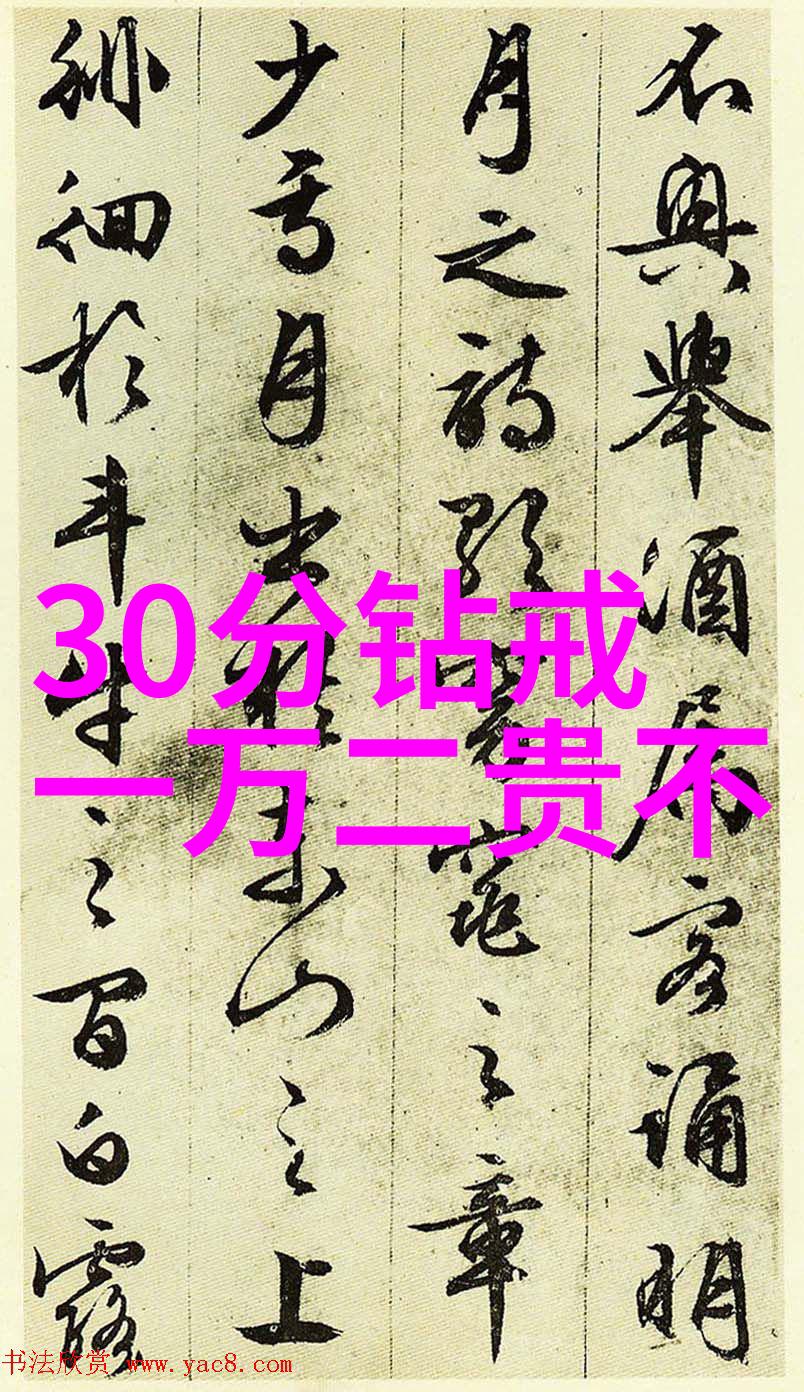 不興舉酒屬客誦明
月之詩歌窈窕之章
少焉月出於東山之上
徘徊於斗牛之間白露
30分钻戒
一万二贵不
书法欣赏 www.yac8.com